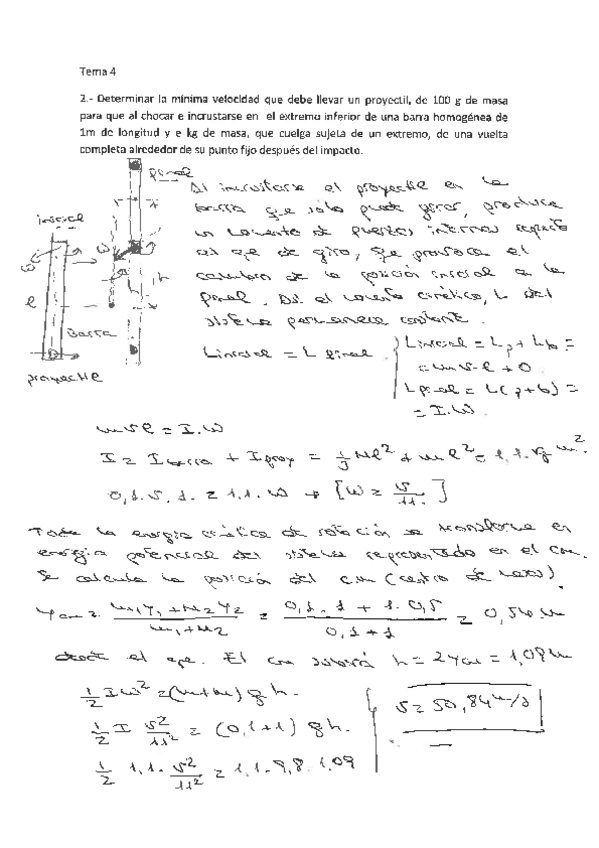 Tema 4
2.- Determinar la mínima velocidad que debe llevar un proyectil, de 100 g de masa
para que al chocar e incrustarse en el extremo inferior de una barra homogénea de
1m de longitud y e kg de masa, que cuelga sujeta de un extremo, de una vuelta
completa alrededor de su punto fijo después del impacto.
final
inicial
ω
h
l
Barra
proyectil
Al incrustarse el proyectil en la
barra que sólo puede girar, produce
un momento de fuerzas internas respecto
al eje de giro, que provoca el
cambio de la posición inicial a la
final. Así el momento cinético, L del
sistema permanece constante.
L inicial = L final
L inicial = Lp + Lb =
= m v l + 0
L final = L(p+b) =
= I.ω
m v l = I.ω
I = I barra + I proy = 1/3 M l² + m l² = 1,1 kg m².
0,1. v. 1. = 1,1. ω → [ω = v/11.]
Toda la energía cinética de rotación se transforma en
energía potencial del sistema representado en el cm.
Se calcula la posición del cm (centro de masas).
Ycm = (m₁y₁ + m₂y₂)/(m₁+m₂) = (0,1. 1 + 1. 0,5)/(0,1+1) = 0,54 m
desde el eje. El cm subirá h = 2ycm = 1,09 m
1/2 I ω² = (m+m) g h.
1/2 I v²/11² = (0,1+1) g h.
1/2 1,1. v²/11² = 1,1. 9,8. 1,09
v = 50,84 m/s